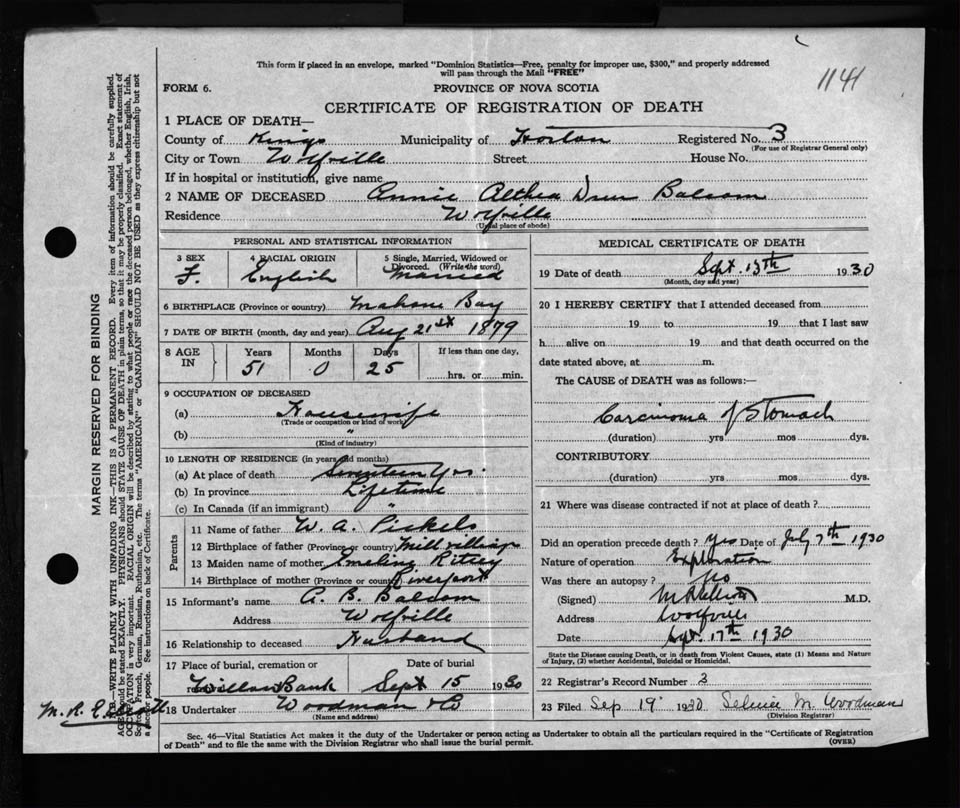 This form if placed in an envelope, marked "Dominion Statistics—Free, penalty for improper use, $300," and properly addressed
will pass through the Mail "FREE"
1141
FORM 6. PROVINCE OF NOVA SCOTIA
CERTIFICATE OF REGISTRATION OF DEATH
1 PLACE OF DEATH—
County of Kings Municipality of Horton Registered No. 3
(For use of Registrar General only)
City or Town Wolfville Street House No.
If in hospital or institution, give name
2 NAME OF DECEASED Annie Althea Balsom
Residence Wolfville
(Usual place of abode)
PERSONAL AND STATISTICAL INFORMATION
3 SEX 4 RACIAL ORIGIN 5 Single, Married, Widowed or
Divorced. (Write the word)
F. English Married
6 BIRTHPLACE (Province or country) Mahone Bay
7 DATE OF BIRTH (month, day and year) Aug 21st 1879
8 AGE IN Years Months Days If less than one day,
51 0 25 hrs. or min.
9 OCCUPATION OF DECEASED
(a) Housewife
(Trade or occupation or kind of work)
(b) "
(Kind of industry)
10 LENGTH OF RESIDENCE (in years and months)
(a) At place of death Seventeen yrs.
(b) In province Lifetime
(c) In Canada (if an immigrant) "
Parents
11 Name of father W. A. Pickels
12 Birthplace of father (Province or country) Mill village
13 Maiden name of mother Emeline Ritcey
14 Birthplace of mother (Province or country)
15 Informant's name A. B. Balsom
Address Wolfville
16 Relationship to deceased Husband
17 Place of burial, cremation or Date of burial
removal Willow Bank Sept 15 1930
18 Undertaker Woodman & Co
(Name and address)
MEDICAL CERTIFICATE OF DEATH
19 Date of death Sept. 13th 1930
(Month, day and year)
20 I HEREBY CERTIFY that I attended deceased from
19 to 19 that I last saw
h alive on 19 and that death occurred on the
date stated above, at m.
The CAUSE OF DEATH was as follows:—
Carcinoma of Stomach
(duration) yrs mos dys.
CONTRIBUTORY
(duration) yrs mos dys.
21 Where was disease contracted if not at place of death?
Did an operation precede death? Yes Date of July 7th 1930
Nature of operation Exploration
Was there an autopsy? No
(Signed) M.D.
Address Wolfville
Date Sept. 17th 1930
State the Disease causing Death, or in death from Violent Causes, state (1) Means and Nature
of Injury, (2) whether Accidental, Suicidal or Homicidal.
22 Registrar's Record Number 3
23 Filed Sep 19 1930 M. Woodman
(Division Registrar)
Sec. 46—Vital Statistics Act makes it the duty of the Undertaker or person acting as Undertaker to obtain all the particulars required in the "Certificate of Registration
of Death" and to file the same with the Division Registrar who shall issue the burial permit. (OVER)
MARGIN RESERVED FOR BINDING
N.B.—WRITE PLAINLY WITH UNFADING INK—THIS IS A PERMANENT RECORD. Every item of information should be carefully supplied.
AGE should be stated EXACTLY. PHYSICIANS should STATE CAUSE OF DEATH in plain terms, so that it may be properly classified. Exact statement of
OCCUPATION is very important. RACIAL ORIGIN will be described by stating to what people or race the deceased person belonged, whether English, Irish,
Scotch, French, German, Russian, Ruthenian, etc. The terms "AMERICAN" or "CANADIAN" SHOULD NOT BE USED as they express citizenship but not
a race or people. See instructions on back of Certificate.